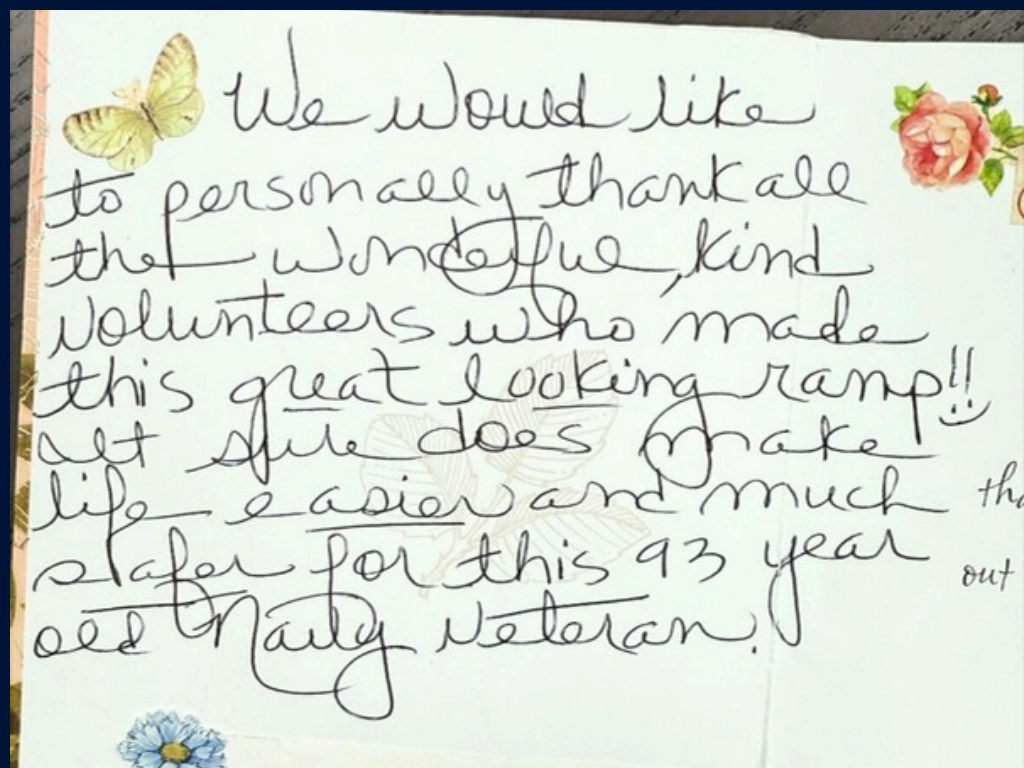 We would like
to personally thank all
the wonderful, kind
volunteers who made
this great looking ramp!!
It sure does make
life easier and much
safer for this 93 year
old Navy veteran.
out